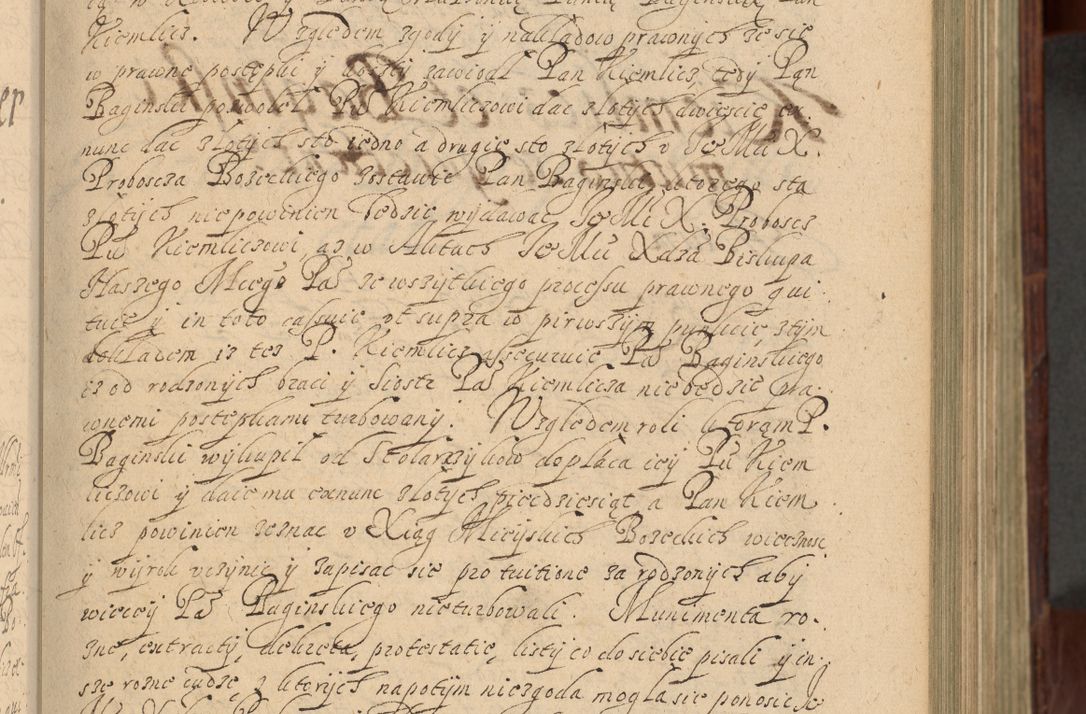 Kiemlicz. Względem zgody y nakładow prawnych ze się
w prawne postępki y koszty zawiodł Pan Kiemlicz, tedy Pan
Baginski pozwolił Pu Kiemliczowi dac złotych dwiescie ex
nunc dac złotych sto iedno a drugie sto złotych v Je Mci X.
Proboscza Boseckiego zostawić Pan Baginski, ktorego sta
złotych niepowinien będzie wydawac Je Mć X. Probosc
Pu Kiemliczowi, asz w Aktach Je Mci Xdza Biskupa
Naszego Mciego Pa ze wszytkiego processu prawnego qui
tuie y in toto cassuie vt supra w pirwszym punkcie, ztym
dokładem isz tesz P. Kiemlicz assecuruie Pa Baginskiego
isz od rodzonych braci y siostr Pa Kiemlicza niebędzie pra-
wnemi postępkami turbowany. Względem roli ktorą m P.
Baginski wykupił od Stolarzykow dopłaca iey Pu Kiem
liczowi y daie mu exnunc złotych piędziesiąt, a Pan Kiem
licz powinien zeznac v Xiąg Mieyskich Boseckich wieczność
y wyrok vczynic y zapisac się pro tuitione za rodzonych aby
więcey Pa Baginskiego nieturbowali. Munimenta ro-
zne, extracty, dekreta, protestatie, listy co do siebie pisali y in-
sze rozne cudze z ktorych napotym niezgoda mogła sie ponosić